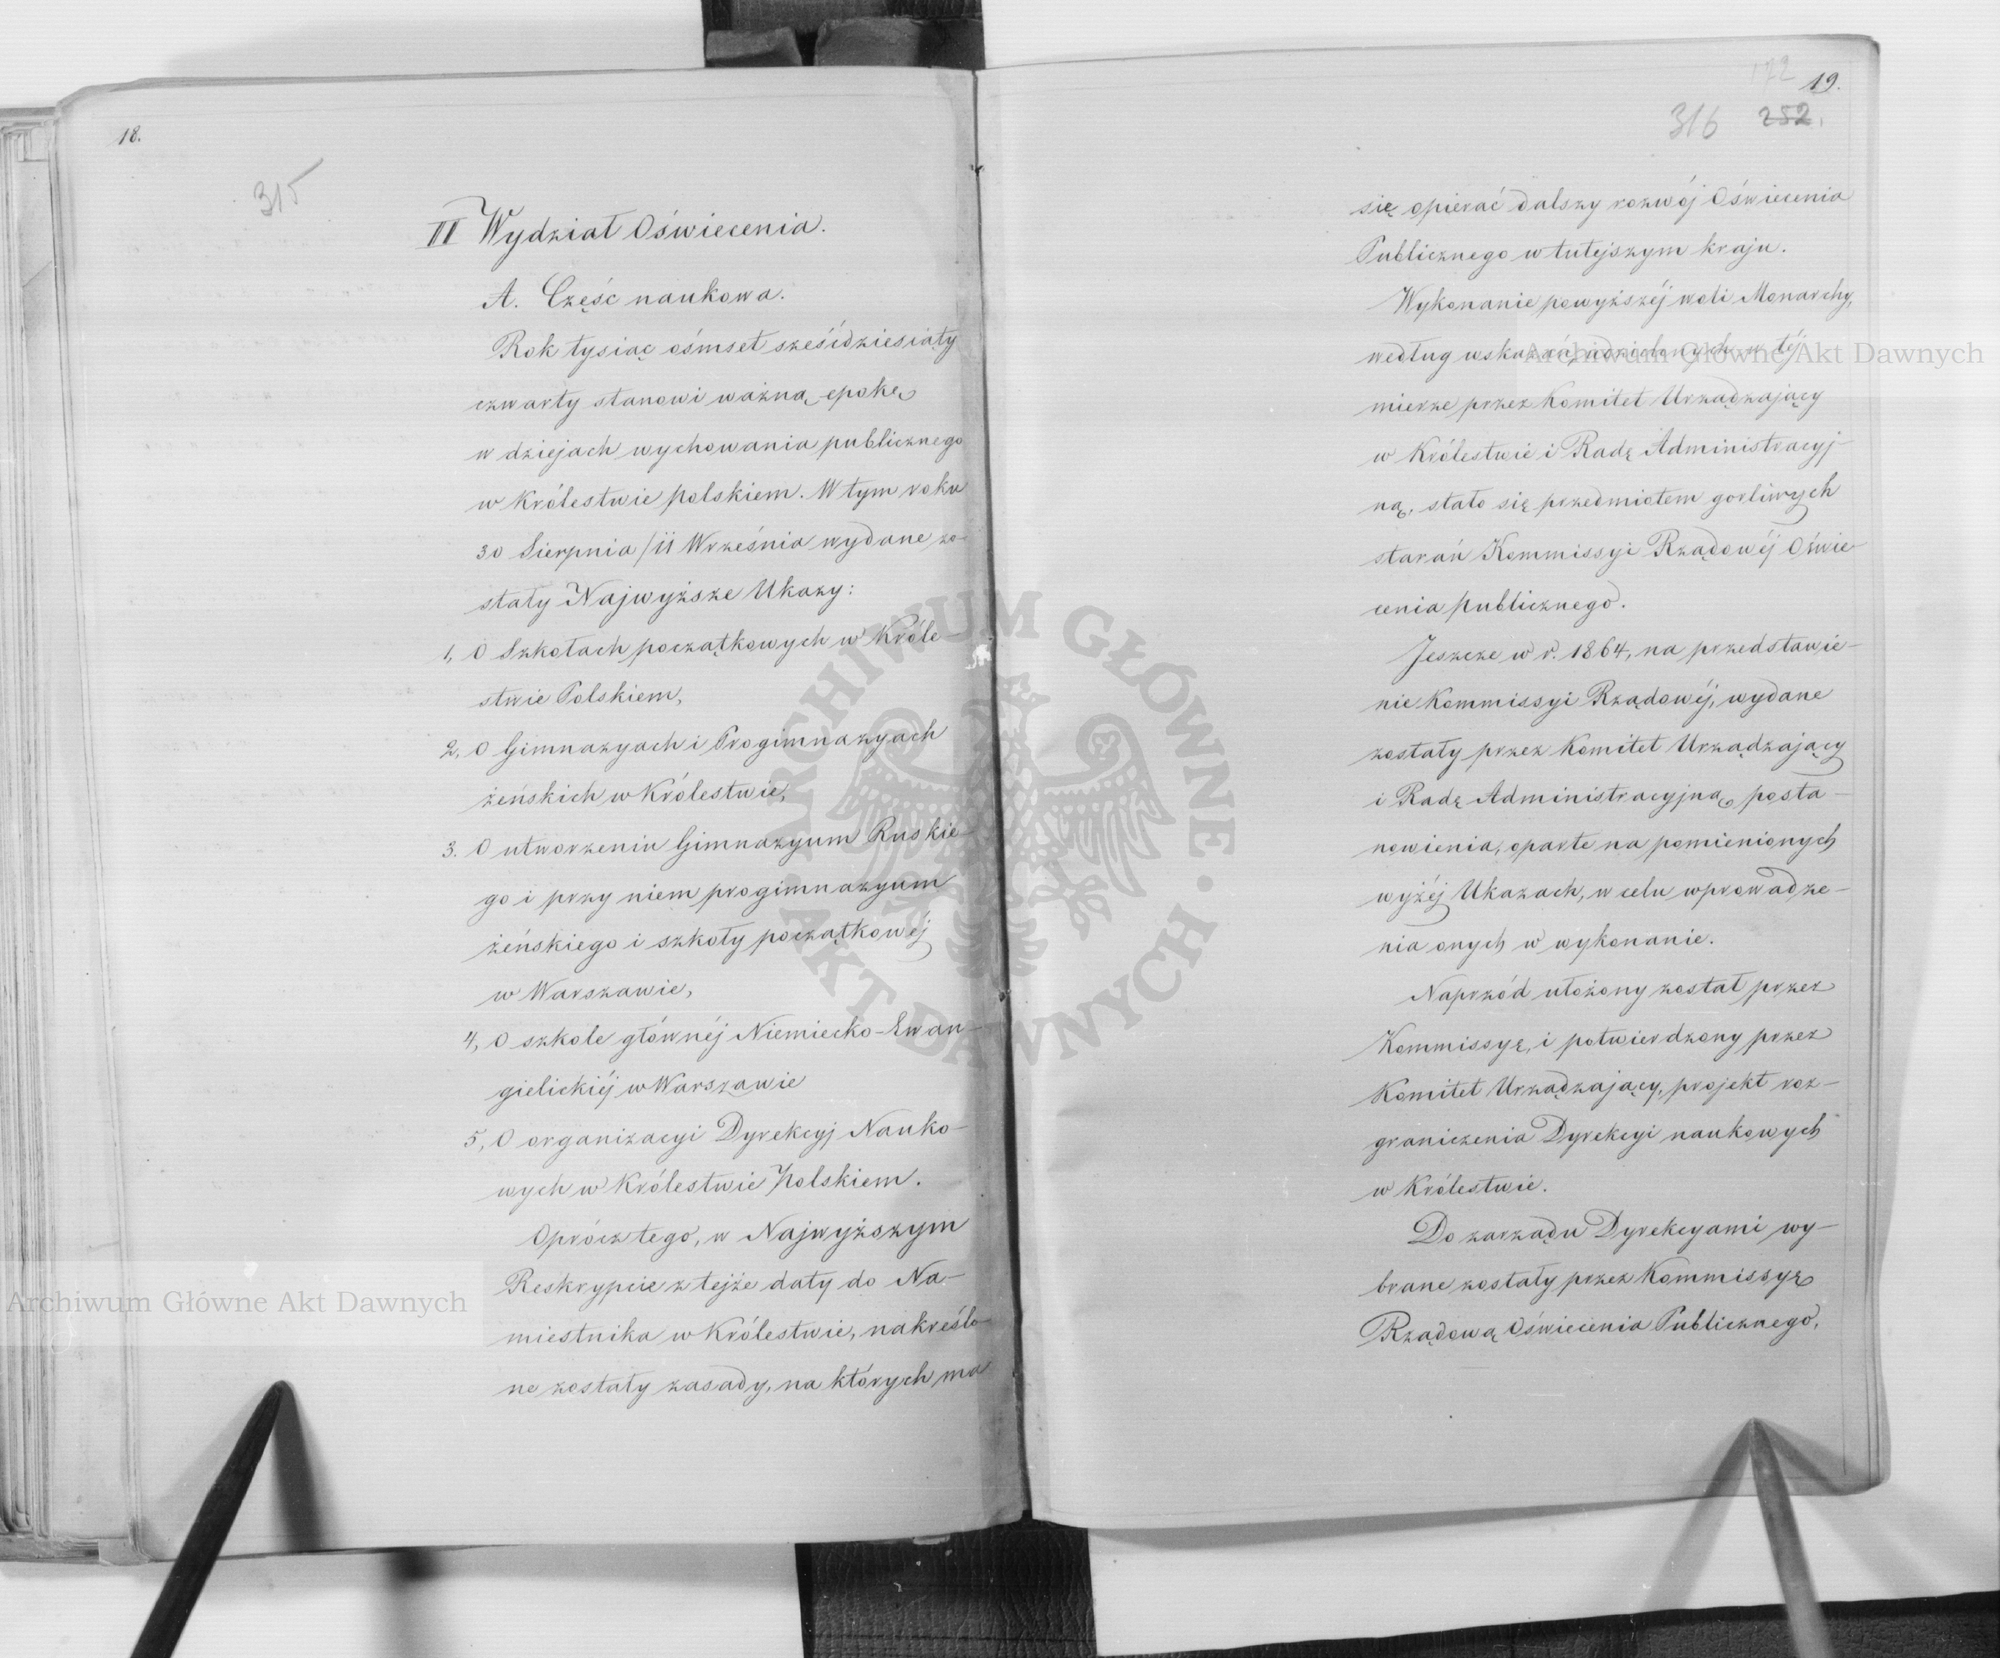 18.
315
II Wydział Oświecenia.
A. Część naukowa.
Rok tysiąc ośmset sześćdziesiąty
czwarty stanowi ważną epokę
w dziejach wychowania publicznego
w Królestwie polskiem. W tym roku
30 Sierpnia / 11 Września wydane zo-
stały Najwyższe Ukazy:
1, O Szkołach początkowych w Króle-
stwie Polskiem,
2, O Gimnazyach i Progimnazyach
żeńskich w Królestwie,
3. O utworzeniu Gimnazyum Ruskie-
go i przy niem progimnazyum
żeńskiego i szkoły początkowéj
w Warszawie,
4, O szkole głównéj Niemiecko-Ewan-
gielickiéj w Warszawie
5, O organizacyi Dyrekcyj Nauko-
wych w Królestwie Polskiem.
Oprócz tego, w Najwyższym
Reskrypcie z tejże daty do Na-
miestnika w Królestwie, nakreślo-
ne zostały zasady, na których ma
172
19.
316 252.
się opierać dalszy rozwój Oświecenia
Publicznego w tutejszym kraju.
Wykonanie powyższéj woli Monarchy,
według wskazań, udzielonych w téj
mierze przez Komitet Urządzający
w Królestwie i Radę Administracyj-
ną, stało się przedmiotem gorliwych
starań Kommissyi Rządowéj Oświe-
cenia publicznego.
Jeszcze w r. 1864, na przedstawie-
nie Kommissyi Rządowéj, wydane
zostały przez Komitet Urządzający
i Radę Administracyjną posta-
nowienia, oparte na pomienionych
wyżéj Ukazach, w celu wprowadze-
nia onych w wykonanie.
Naprzód ułożony został przez
Kommissyę, i potwierdzony przez
Komitet Urządzający, projekt roz-
graniczenia Dyrekcyi naukowych
w Królestwie.
Do zarządu Dyrekcyami wy-
brane zostały przez Kommissyę
Rządową Oświecenia Publicznego,
Archiwum Główne Akt Dawnych
Archiwum Główne Akt Dawnych
ARCHIWUM GŁÓWNE
AKT DAWNYCH